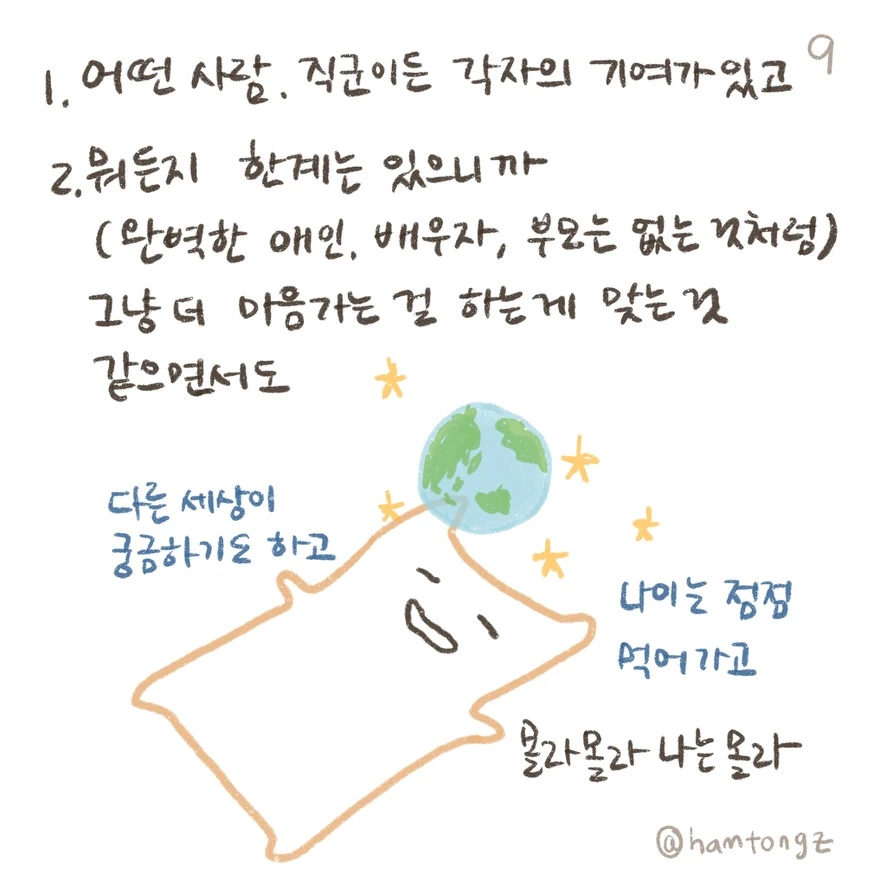 9
1. 어떤 사람. 직군이든 각자의 기여가 있고
2. 뭐든지 한계는 있으니까
(완벽한 애인. 배우자, 부모는 없는 것처럼)
그냥 더 마음가는 걸 하는게 맞는 것
같으면서도
다른 세상이
궁금하기도 하고
나이는 점점
먹어가고
몰라몰라 나는몰라
@hamtongz